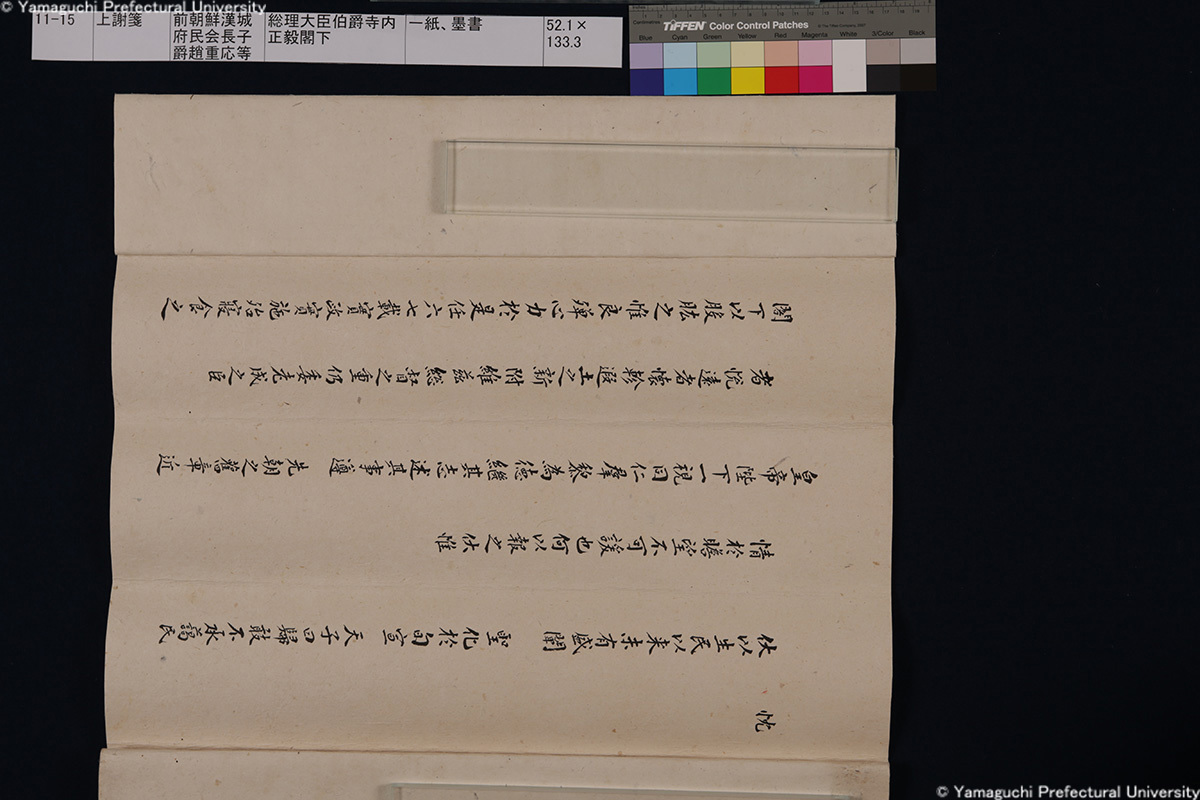 © Yamaguchi Prefectural University
11-15 上謝箋 前朝鮮漢城府民会長子爵趙重応等 総理大臣伯爵寺内正毅閣下 一紙、墨書 52.1×133.3
TIFFEN Color Control Patches
Blue Cyan Green Yellow Red Magenta White 3/Color Black
忱
伏以生民以来未有盛闡 聖化於旬宣天子曰歸敢不承萬民
情於瞻望不可諼也何以報之伏惟
皇帝陛下一視同仁羣黎為德繼其志述其事遵 先朝之舊章近
者悦遠者懐軫遐土之新附維茲総督之重仍委老成之臣
閣下以股肱之惟良殫心力於是任六七載實政實施治寢食之
© Yamaguchi Prefectural University